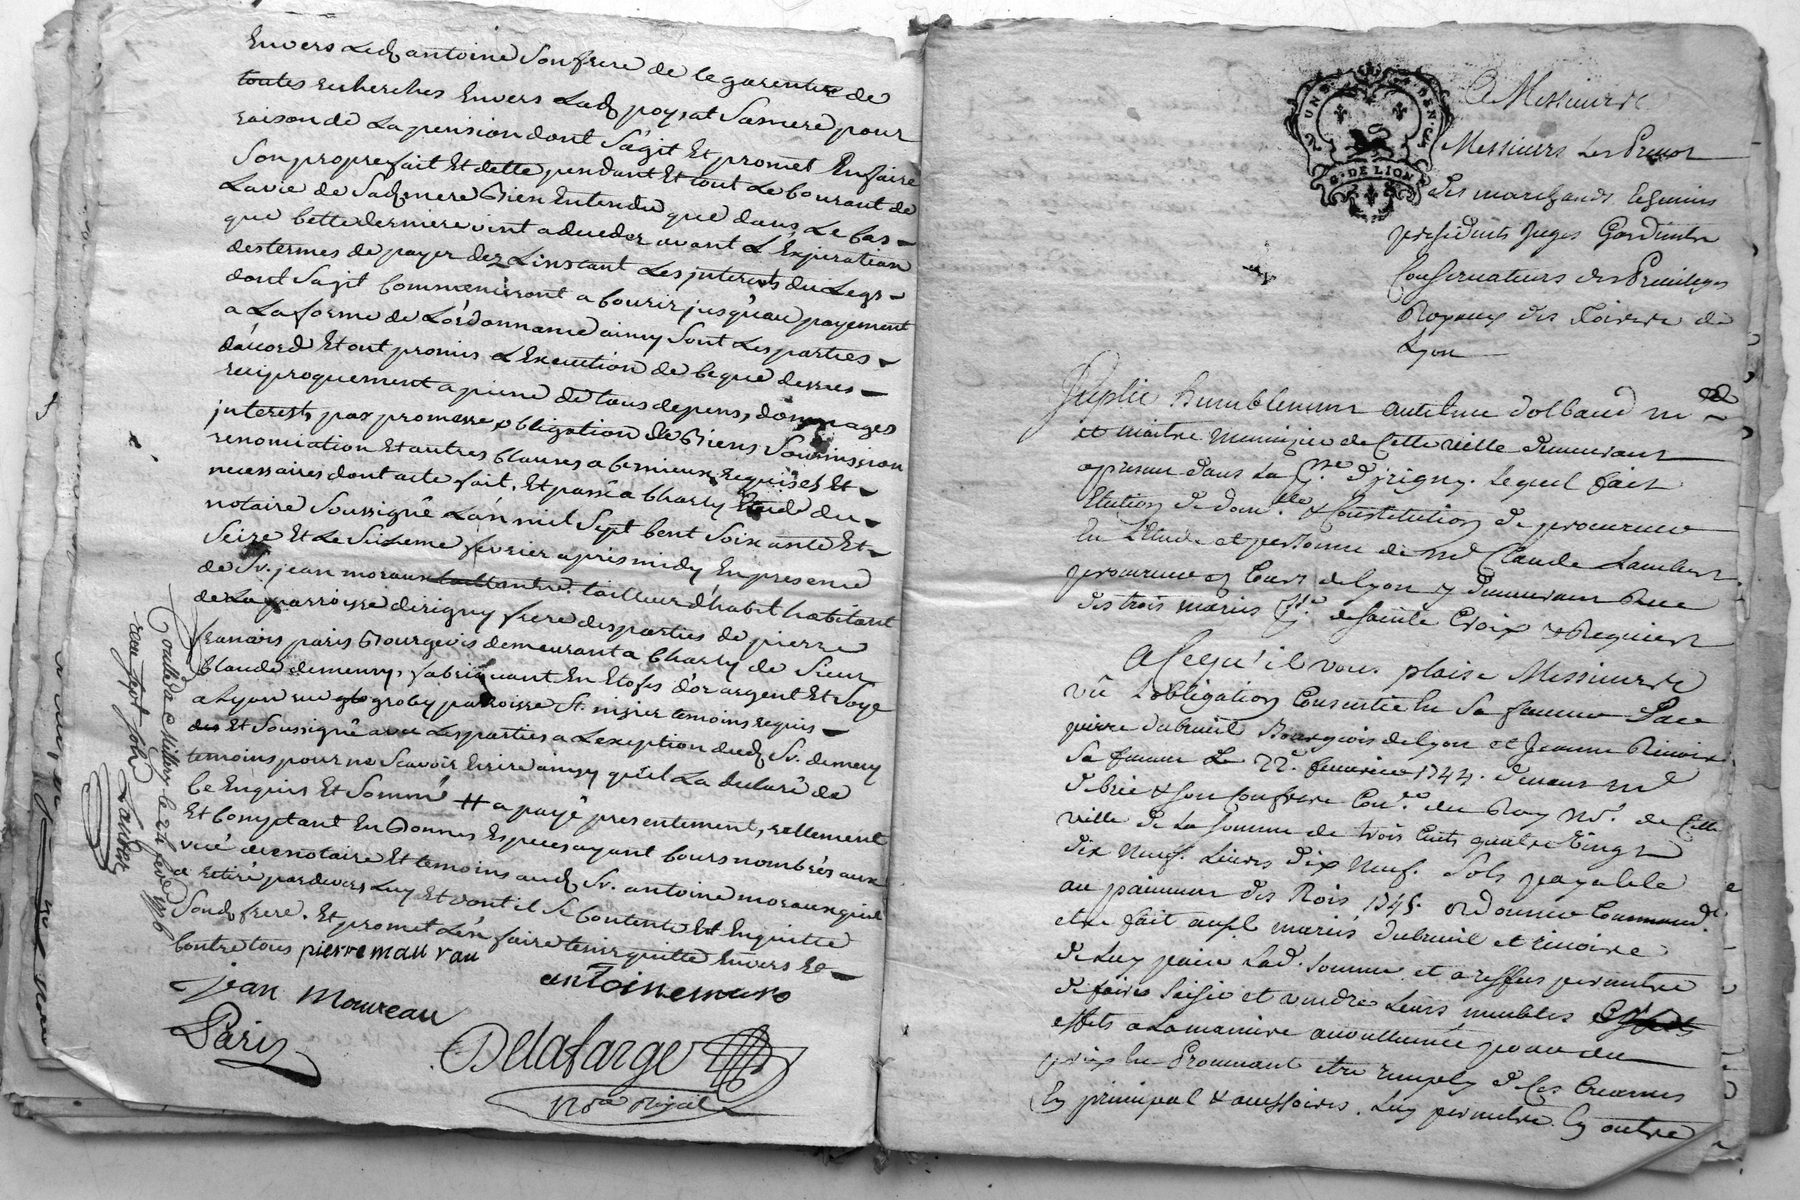 Envers Led antoine Son frere de le garentir de
toutes recherches Envers Lad poyrat Samere pour
raison de La pension dont S'agit Et promet En faire
Son propre fait Et dette pendant Et tout Le Courant de
Lavie de Sad mere Bien Entendu que dans Le Cas
que Cette derniere vint a deceder avant L'Expiration
des termes de payer dez Linstant Les interests du Legs
dont Sagit Commenceront a Courir jusqu'au payement
a La forme de L'ordonnance ainsy Sont Les parties
d'accord Et ont promis L'Execution de Ceque dessus
reciproquement a peine de tous depens, dommages
interests par promesse obligation de Biens Soumission
renonciation Et autres Clauses a Ce mieux requises Et
necessaires dont acte fait, Et passé a Charly Etude du
notaire Soussigné L'an mil Sept Cent Soixante Et
Seize Et Le Sixieme fevrier apres midy En presence
de Sr. jean moraux tailleur d'habit habitant
de La parroisse dirigny frere des parties de pierre
francois paris Bourgeois demeurant a Charly de Sieur
Claude demeury, fabriquant En Etofes d'or argent Et Soye
a Lyon rue groley parroisse St. nizier temoins requis
Et Soussigné avec Les parties a L'exeption dud Sr. demeury
temoins pour ne Scavoir Ecrire ainsy qu'il La declaré de
Ce Enquis Et Sommé # a payé presentement, reellement
Et Comptant En Bonnes Especes ayant Cours nombrés aux
vue de notaire Et temoins aud Sr. antoine moraux qui
a retiré pardevers Luy Et dont il Se Contente Et Enquitte
Sond frere. Et promet L'en faire tenir quitte Envers Et
Contre tous pierre mau rau
jean Maureau
antoine
Paris
Delafarge
No.re Royal
A Messieurs
Messieurs Les Prevot
des marchands Echevins
presidents Juges Gardiens
Conservateurs des Privileges
Royaux des foires de
Lyon
G. DE LION
Suplie humblement
et maitre menuizier de Cette ville demeurant
a present dans La d'yrigny. Lequel fait
Election de dom.lle & Constitution de procureur
En L'Etude et personne de Me Claude Lambert
procureur es Cours de Lyon y demeurant Rue
des trois maries de Sainte Croix & Requiert
A Cequ'il vous plaise Messieurs
vû L'obligation Consentie En Sa faveur Par
pierre dubreuil Bourgeois de Lyon et Jeanne
Sa femme Le 22e. fevrier 1744. devant Me
& Son Confrere Con.r du Roy No.re de Cette
ville de La Somme de trois Cents quatre Vingt
dix Neuf Livres dix Neuf Sols payable
au paiement des Rois 1745. ordonner Commandt
etre fait aux mariés dubreuil et
de Luy paier Lad. Somme et a reffus permettre
de faire Saisir et vendre Leurs meubles
effets a La maniere accoutumée pour du
prix En Provenant etre remply de Ses Creances
En principal & accessoires. Luy permettre En outre